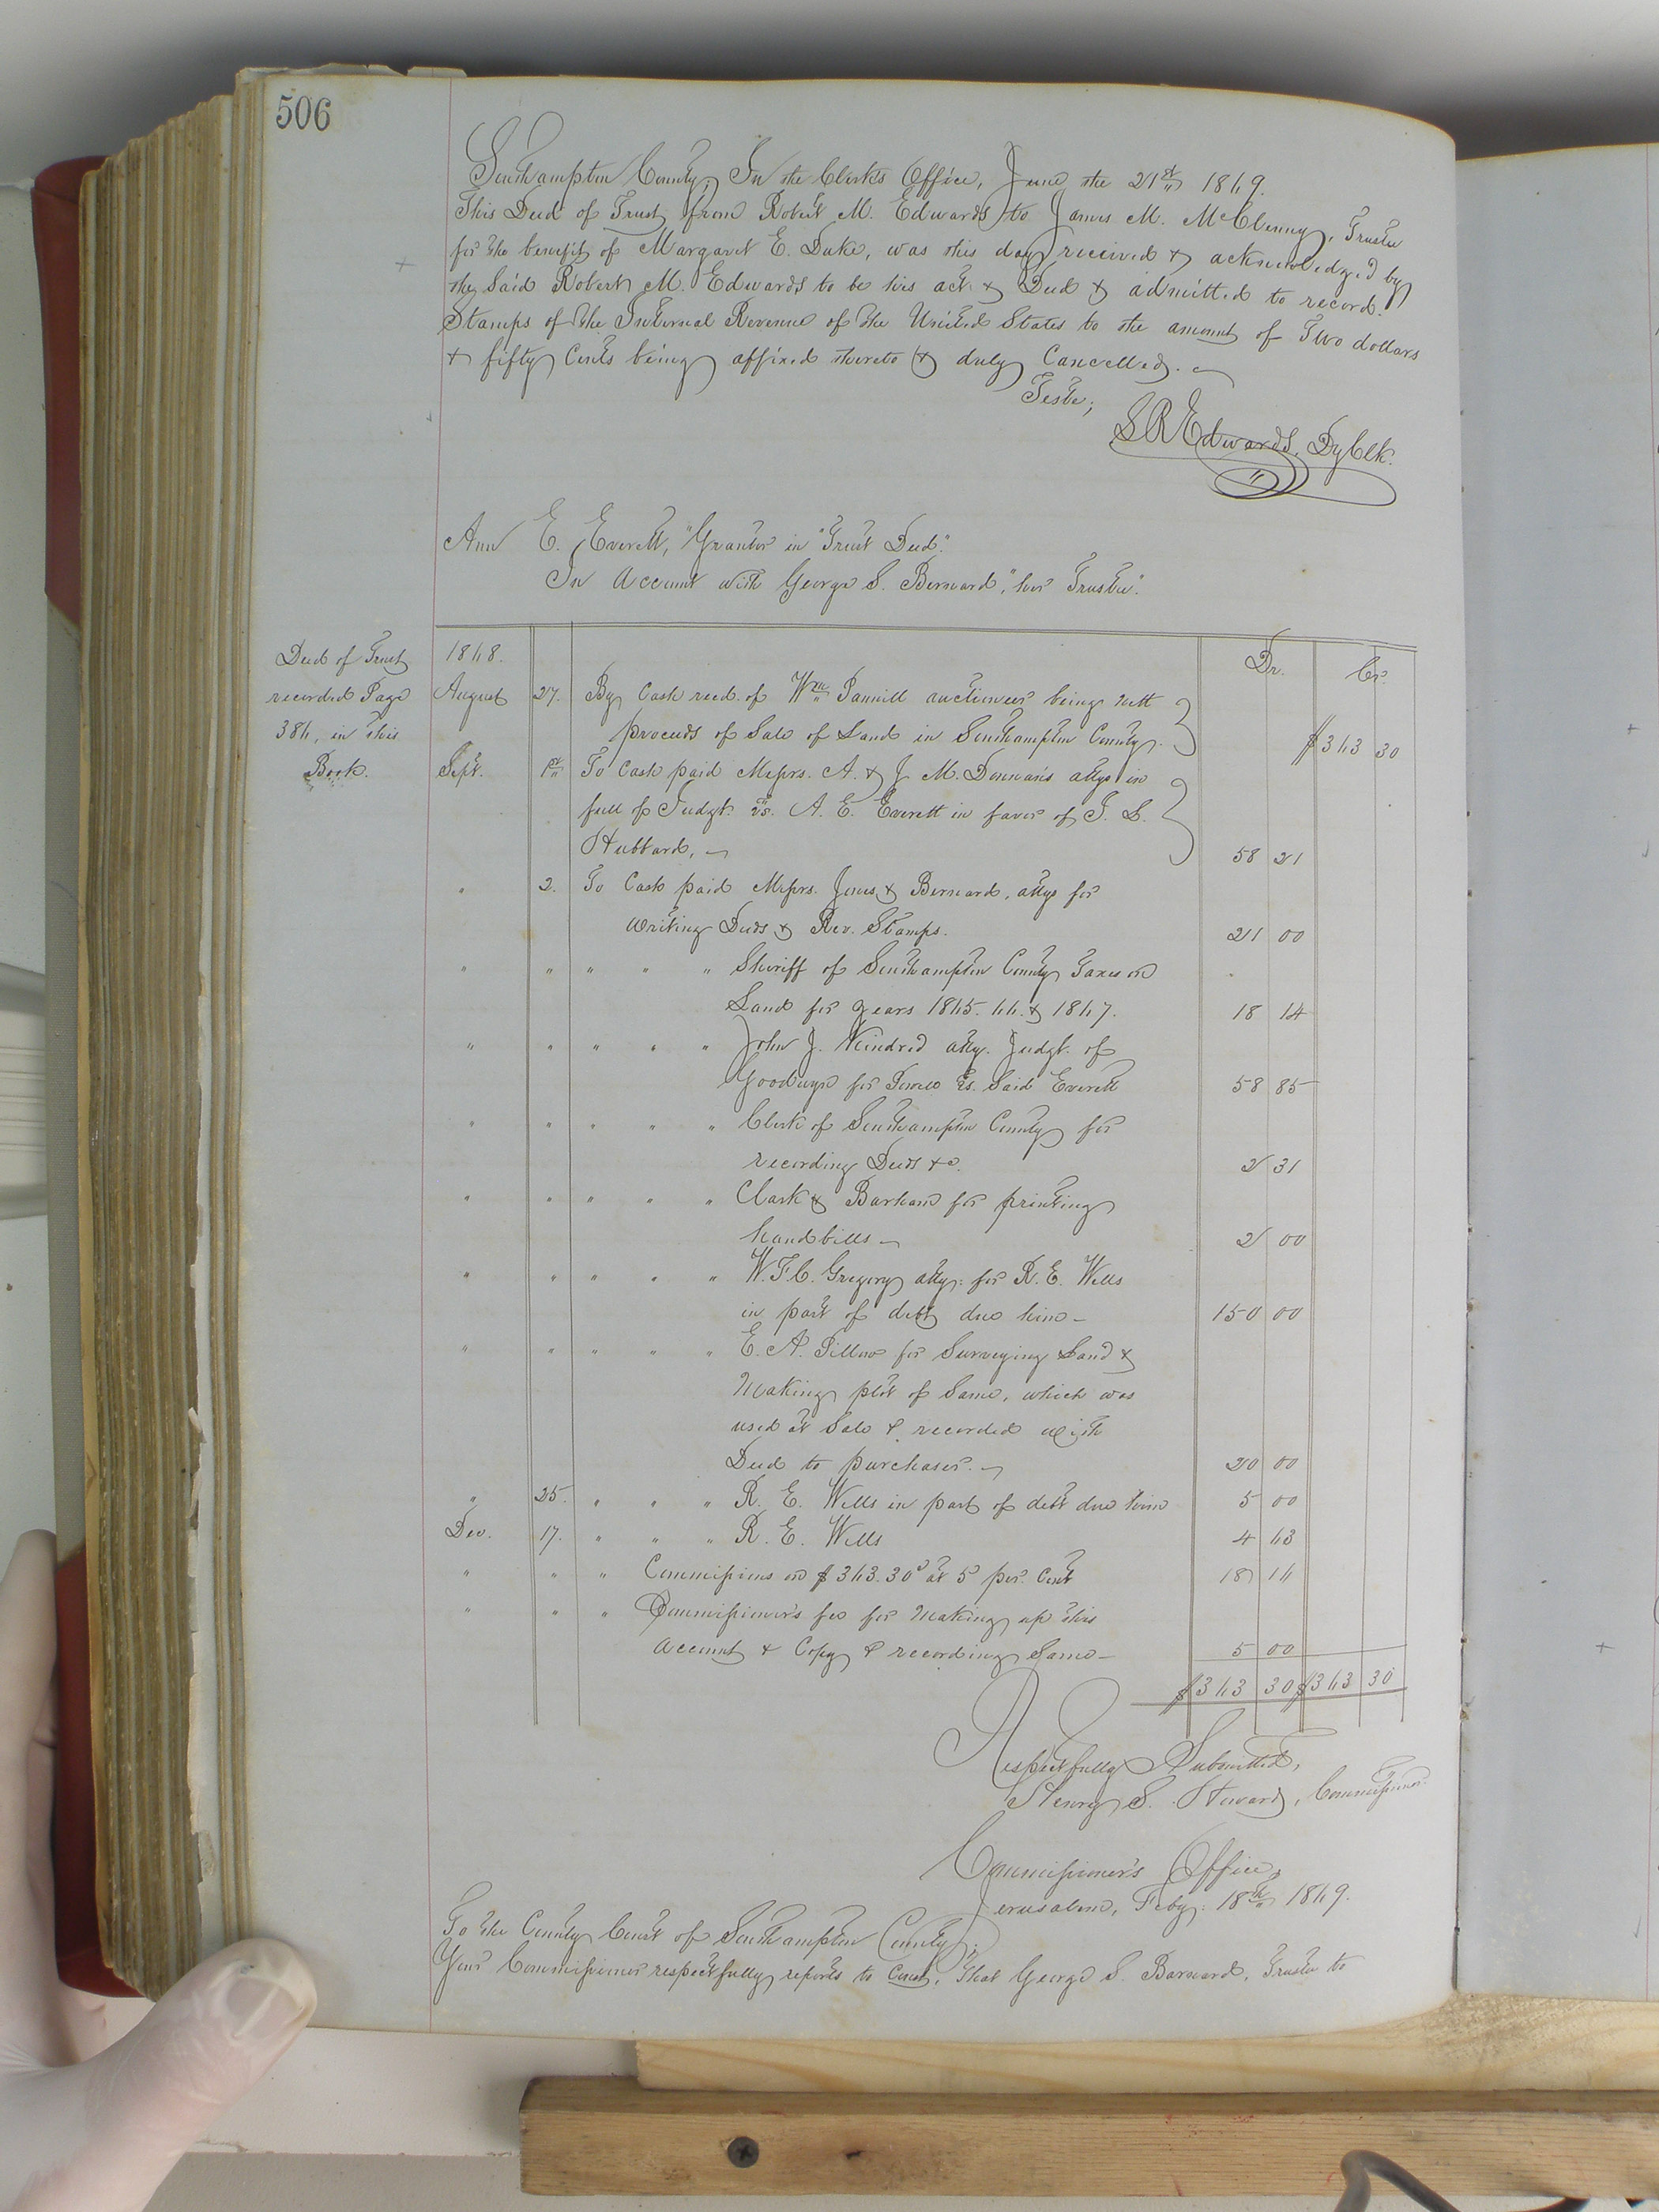 506
Southampton County; In the Clerk's Office, June the 21st 1869.
This Deed of Trust from Robert M. Edwards to James M. McClenny, Trustee
for the benefit of Margaret E. Duke, was this day received & acknowledged by
the Said Robert M. Edwards to be his act & Deed & admitted to record.
Stamps of the Internal Revenue of the United States to the amount of Two dollars
& fifty Cents being affixed thereto & duly Cancelled.
Teste;
S R Edwards, Dy Clk.
Ann E. Everett, "Grantor in "Trust Deed".
In Account with George S. Bernard, "her Trustee".
Deed of Trust
recorded Page
386, in this
Book.
1868. Dr. Cr.
August 27. By Cash recd. of Wm Pannill auctioneer being nett
proceeds of Sale of Land in Southampton County. $363 30
Sept. 1st To Cash paid Messrs. A. & J M. Donnan's attys in
full of Judgt. vs. A. E. Everett in favor of
Hubbard, — 58 21
" 2. To Cash paid Messrs. Jones & Bernard, attys for
writing Deeds & Rev. Stamps. 21 00
" " " " " Sheriff of Southampton County Taxes on
Land for years 1865. 66. & 1867. 18 14
" " " " " John J. Kindred atty. Judgt. of
Goodwyn for Junco vs. Said Everett 58 85
" " " " " Clerk of Southampton County for
recording Deeds &c. 2 31
" " " " " Clark & Barham for printing
handbills — 2 00
" " " " " W. F. C. Gregory atty. for R. E. Wells
in part of debt due him — 150 00
" " " " " E. A. Pillow for Surveying Land &
Making plot of Same, which was
used at Sale & recorded with
Deed to purchaser. — 20 00
" 25. " " " R. E. Wells in part of debt due him 5 00
Dec. 17. " " " R. E. Wells 4 63
" " " Commissions on $363.30 at 5 per. Cent 18 16
" " " Commissioner's fee for Making up this
account & Copy & recording Same — 5 00
$363 30 $363 30
Respectfully Submitted,
Henry S. Howard, Commissioner
Commissioner's Office,
Jerusalem, Feby. 18th 1869.
To the County Court of Southampton County;
Your Commissioner respectfully reports to Court, That George S. Barnard, Trustee to